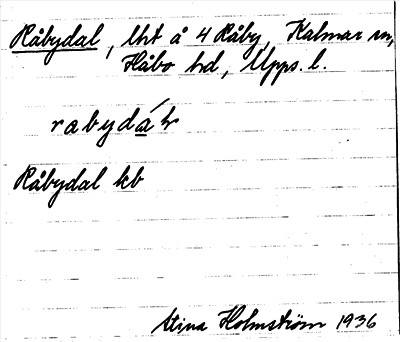 Råbydal, lht å 4 Råby, Kalmar sn,
Håbo hd, Upps. l.
rabydáɫ
Råbydal kb
Stina Holmström 1936